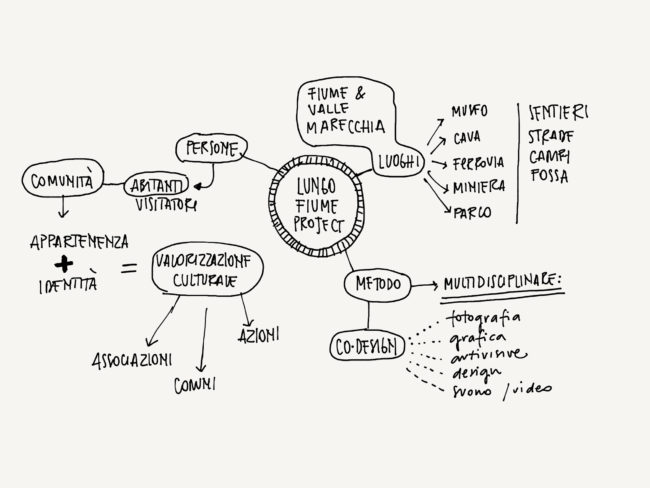 FIUME &
VALLE
MARECCHIA
LUOGHI
MUSEO
CAVA
FERROVIA
MINIERA
PARCO
SENTIERI
STRADE
CAMPI
FOSSA
PERSONE
LUNGO
FIUME
PROJECT
COMUNITÀ
ABITANTI
VISITATORI
APPARTENENZA
+
IDENTITÀ
=
VALORIZZAZIONE
CULTURALE
ASSOCIAZIONI
COMUNI
AZIONI
METODO
MULTIDISCIPLINARE:
CO-DESIGN
fotografia
grafica
artivisive
design
suono / video